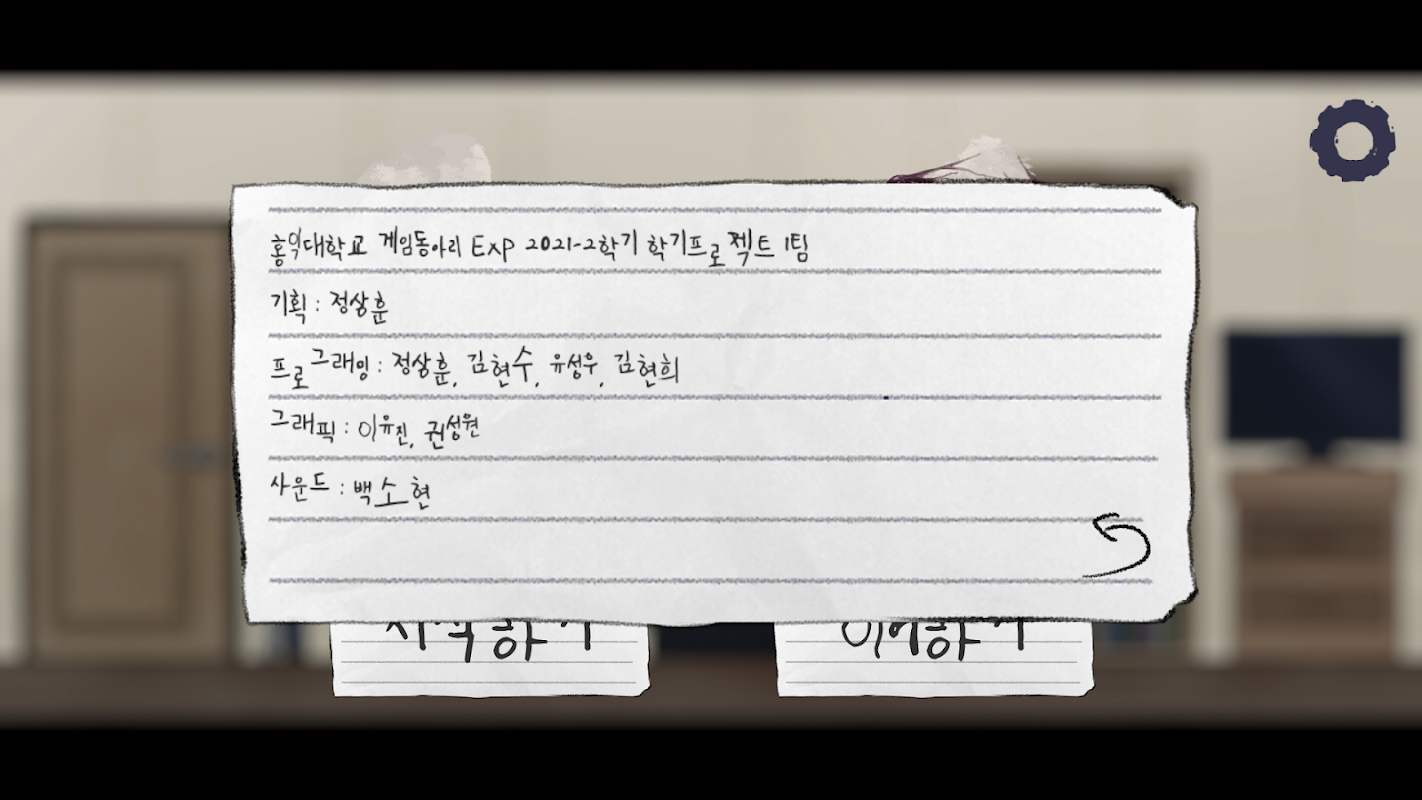 홍익대학교 게임동아리 ExP 2021-2학기 학기프로젝트 1팀
기획 : 정상훈
프로그래밍 : 정상훈, 김현수, 유성우, 김현희
그래픽 : 이유진, 권성원
사운드 : 백소현
시작하기
이어하기